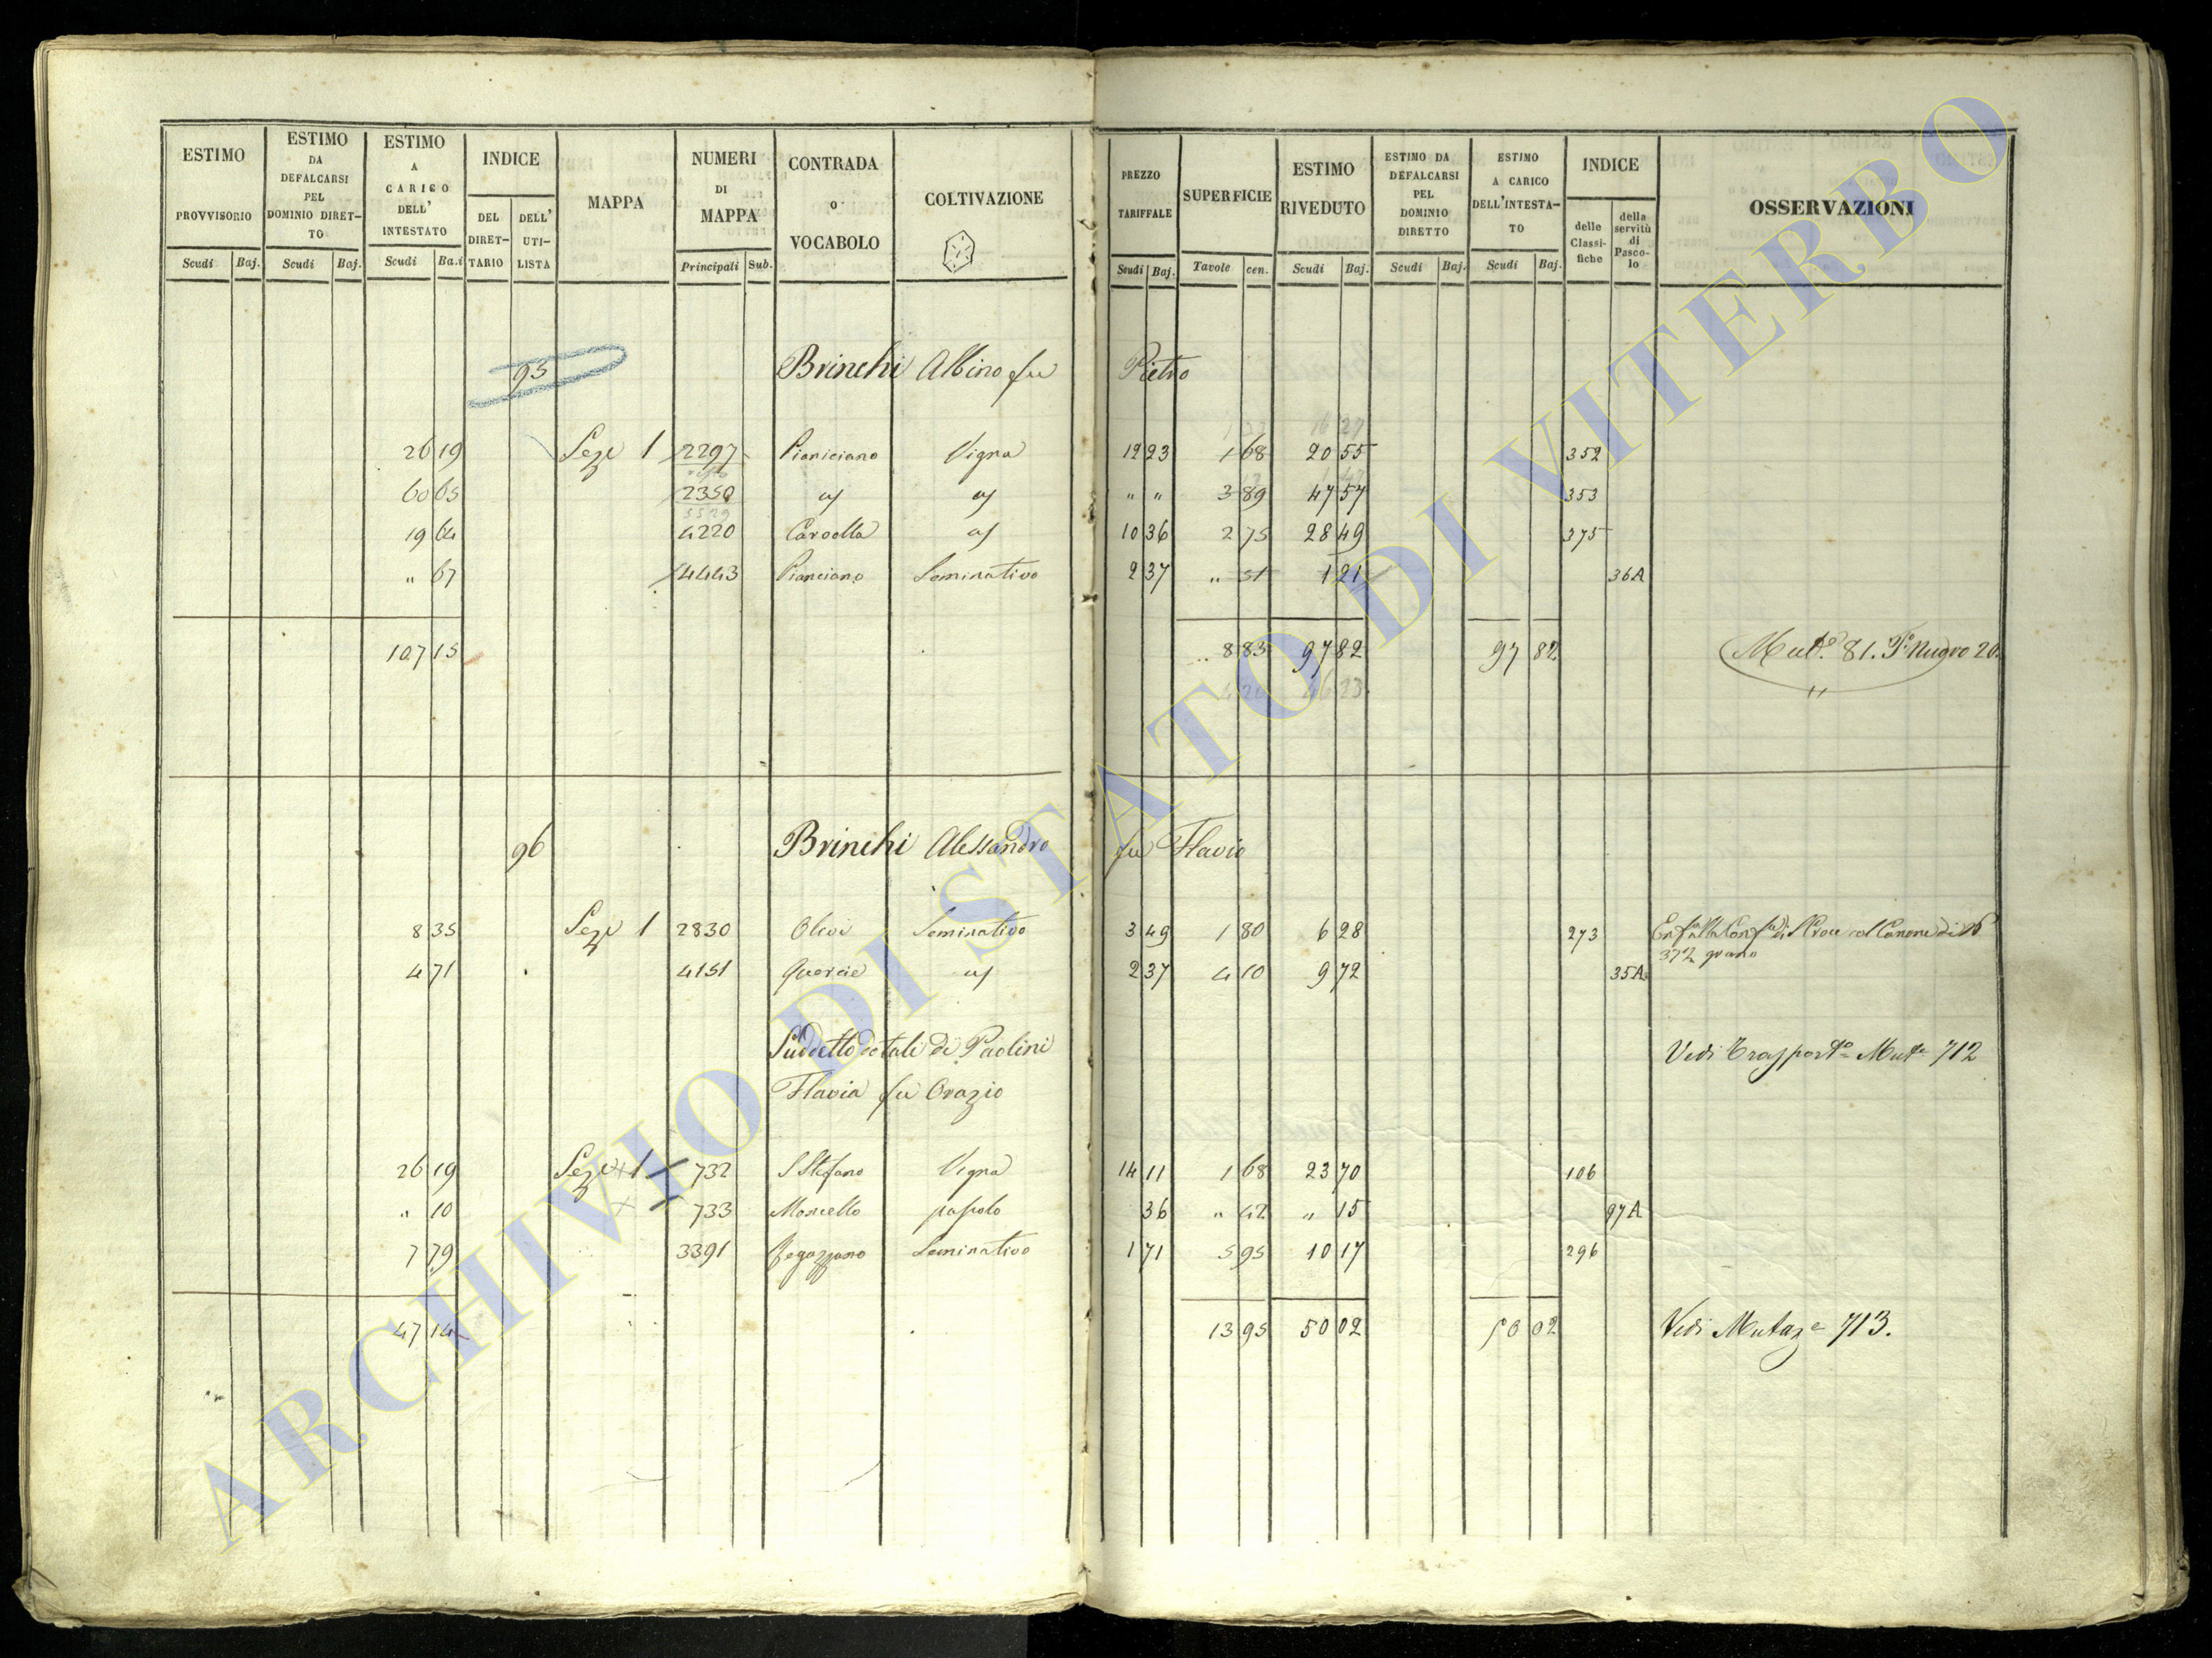 ESTIMO PROVVISORIO Scudi Baj.
ESTIMO DA DEFALCARSI PEL DOMINIO DIRET-TO Scudi Baj.
ESTIMO A CARICO DELL' INTESTATO Scudi Ba.i
INDICE DEL DIRET-TARIO DELL' UTI-LISTA
MAPPA
NUMERI DI MAPPA Principali Sub.
CONTRADA o VOCABOLO
COLTIVAZIONE
PREZZO TARIFFALE Scudi Baj.
SUPERFICIE Tavole cen.
ESTIMO RIVEDUTO Scudi Baj.
ESTIMO DA DEFALCARSI PEL DOMINIO DIRETTO Scudi Baj.
ESTIMO A CARICO DELL'INTESTA-TO Scudi Baj.
INDICE delle Classi-fiche della servitù di Pasco-lo
OSSERVAZIONI
95 Brinchi Albino fu Pietro
26 19 Sez 1 2297 Pianiciano Vigna 12 23 1 68 20 55 352
60 65 2350 " " 3 89 47 57 353
19 64 4220 Caroella 10 36 2 75 28 49 375
" 67 4443 Pianciano Seminativo 2 37 " 51 1 21 36A
107 15 8 83 97 82 97 82 Mut.e 81. P. Nuovo 20.
96 Brinchi Alessandro fu Flavio
8 35 Sez 1 2830 Olivi Seminativo 3 49 1 80 6 28 273
4 71 4151 Quercie 2 37 4 10 9 72 35A
Suddetto dotali di Paolini Vedi Trasporto Mut.e 712
Flavia fu Orazio
26 19 Sez 1 732 S Stefano Vigna 14 11 1 68 23 70 106
" 10 733 Moscello pascolo 36 " 42 " 15 97A
7 79 3391 Seminativo 1 71 5 95 10 17 296
47 14 13 95 50 02 50 02 Vedi Mutaz.e 713.
ARCHIVIO DI STATO DI VITERBO